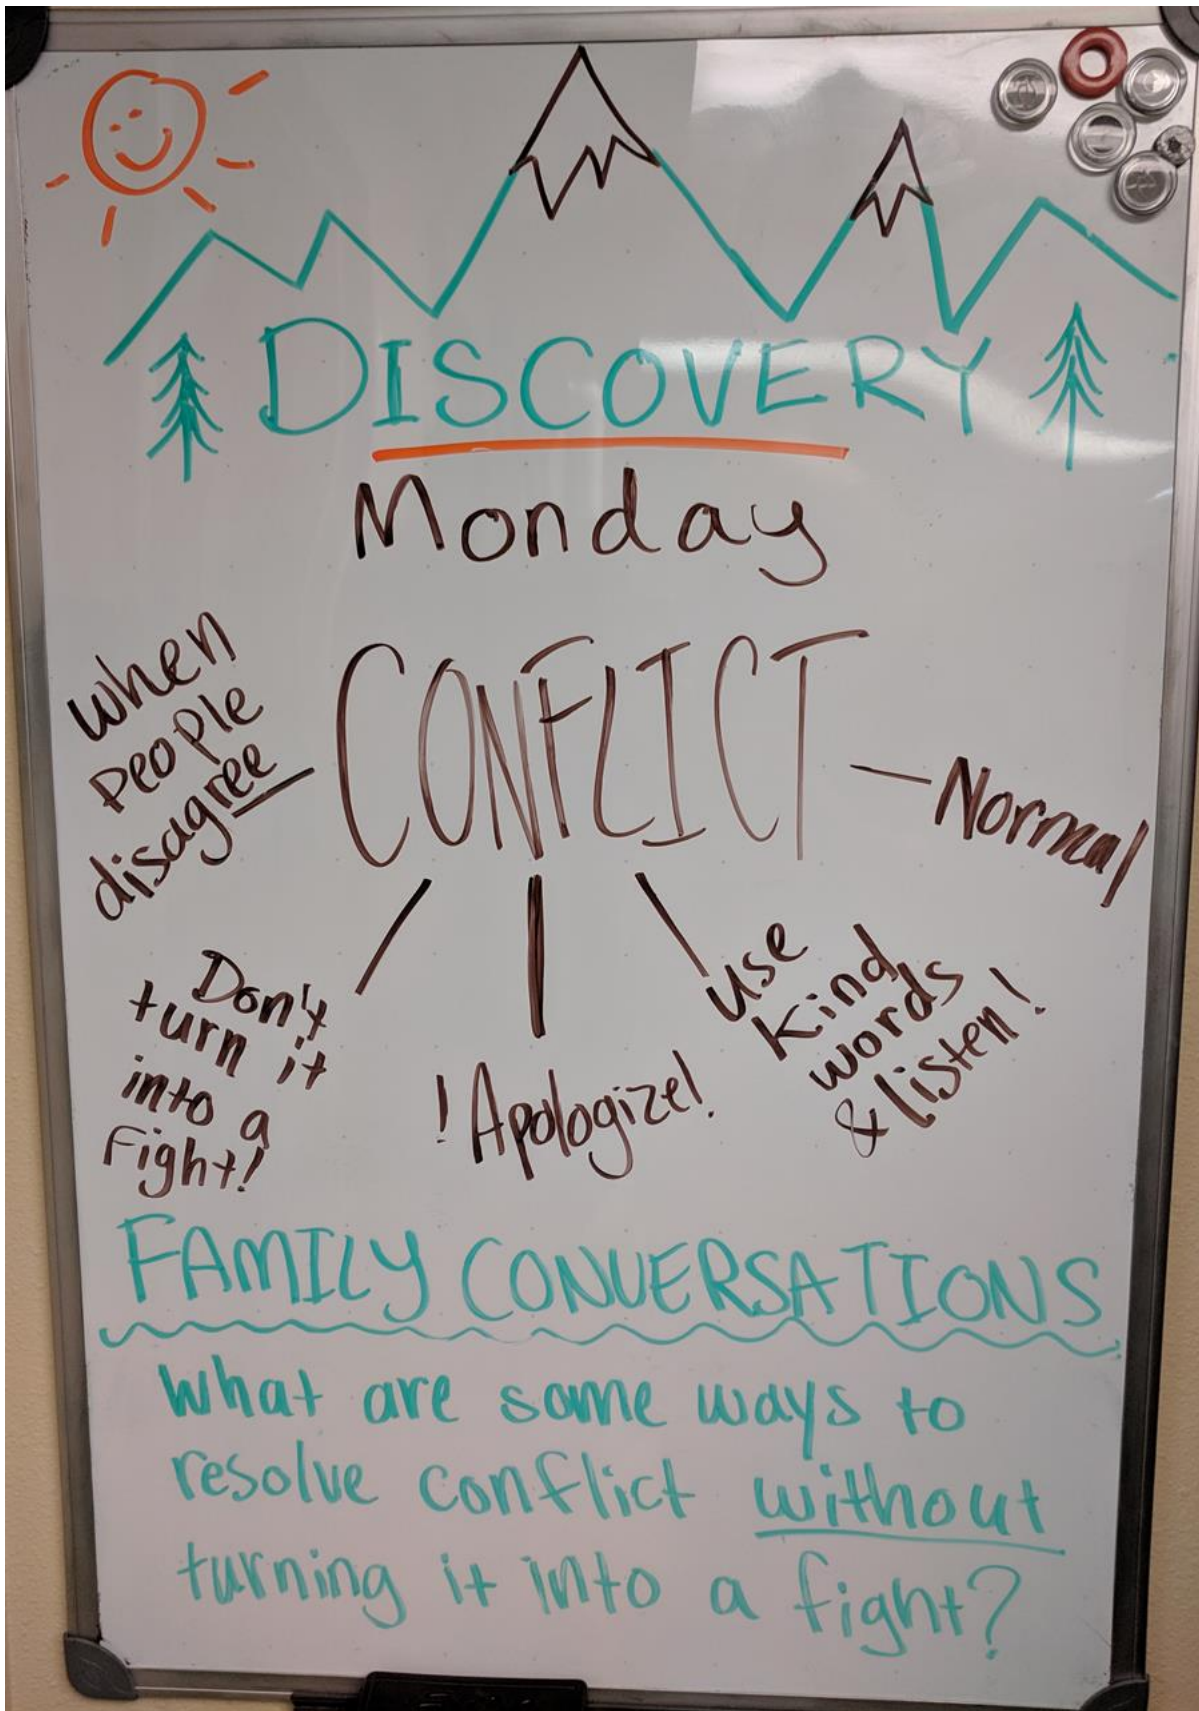 DISCOVERY
Monday
CONFLICT
when
people
disagree
Normal
Don't
turn it
into a
Fight!
! Apologize!
use
kind
words
& listen!
FAMILY CONVERSATIONS
What are some ways to
resolve conflict without
turning it into a fight?